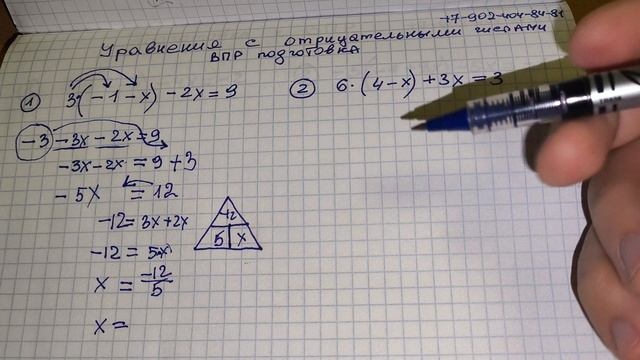 +7-902-404-84-81
Уравнения с отрицательными числами
ВПР подготовка
① 3·(-1-x) - 2x = 9
-3 -3x - 2x = 9
-3x-2x = 9 + 3
-5x = 12
-12 = 3x+2x
-12 = 5x
x = -12/5
x =
-12
5 x
② 6·(4-x) + 3x = 3